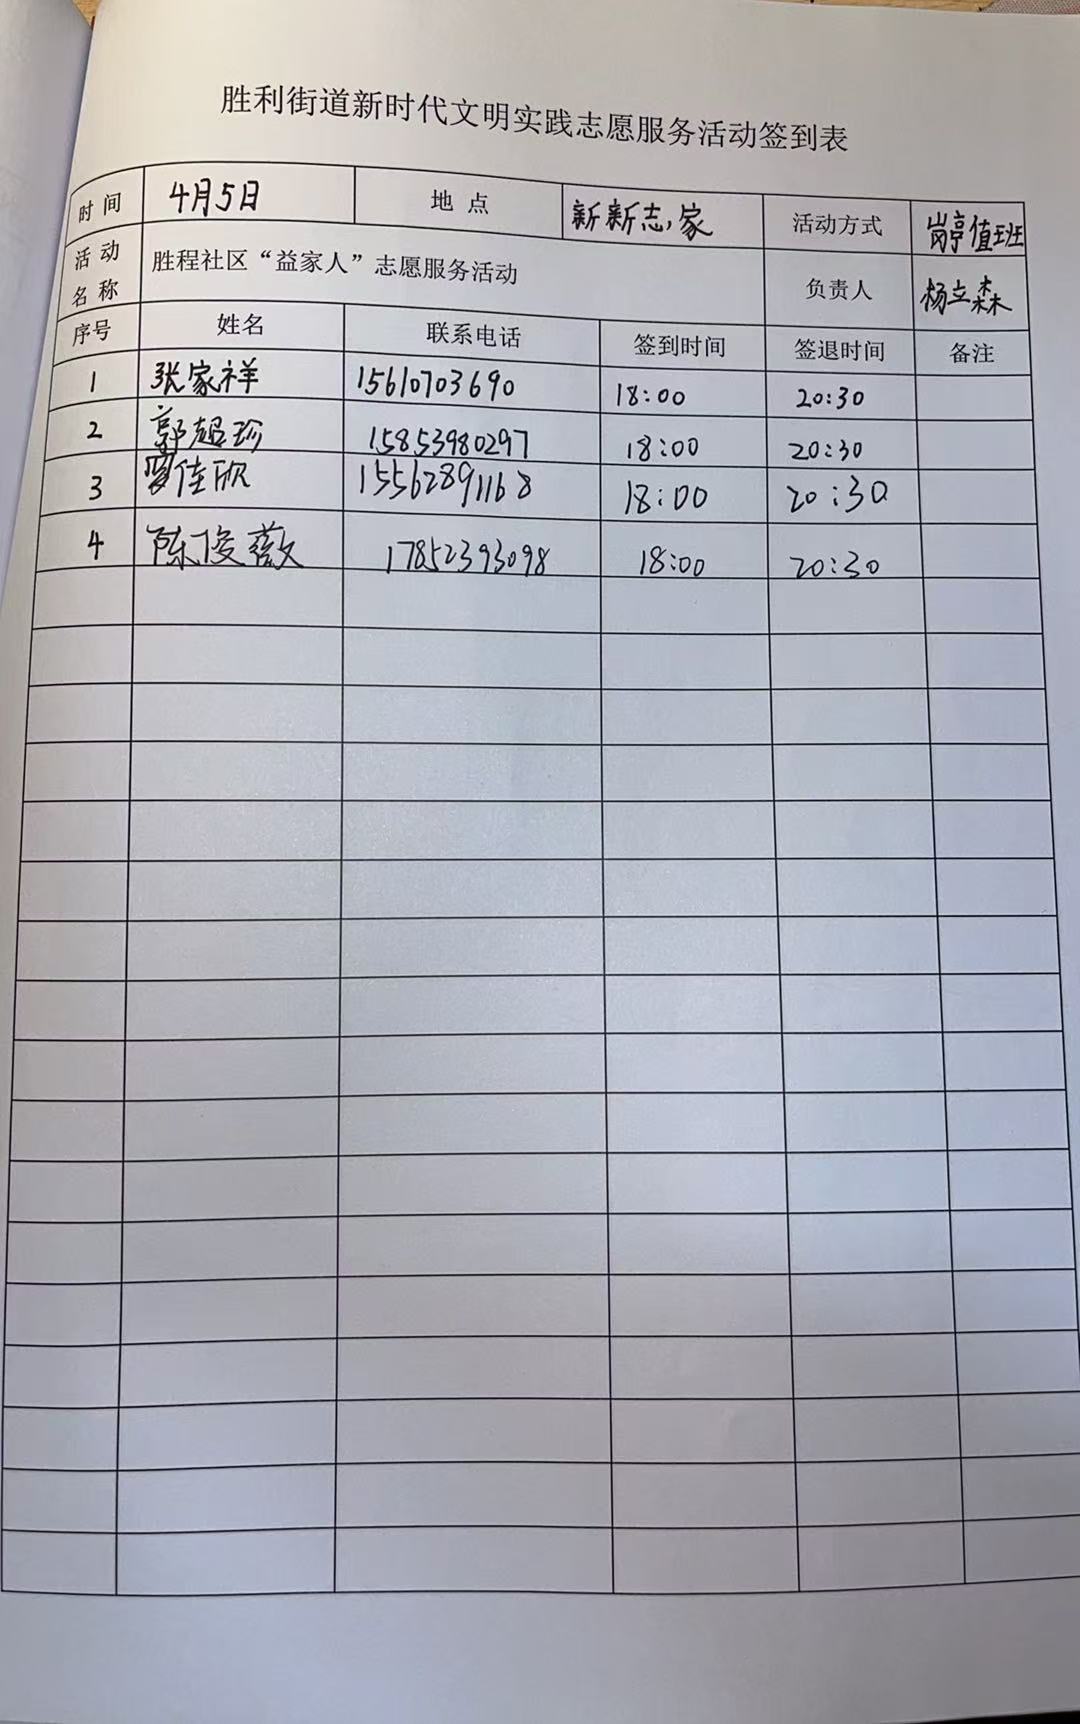 胜利街道新时代文明实践志愿服务活动签到表
时间 4月5日 地点 新新志,家 活动方式 岗亭值班
活动名称 胜程社区“益家人”志愿服务活动 负责人 杨立森
序号 姓名 联系电话 签到时间 签退时间 备注
1 张家祥 15610703690 18:00 20:30
2 郭超珍 15853980297 18:00 20:30
3 罗佳欣 15562891168 18:00 20:30
4 陈俊薇 17852393098 18:00 20:30